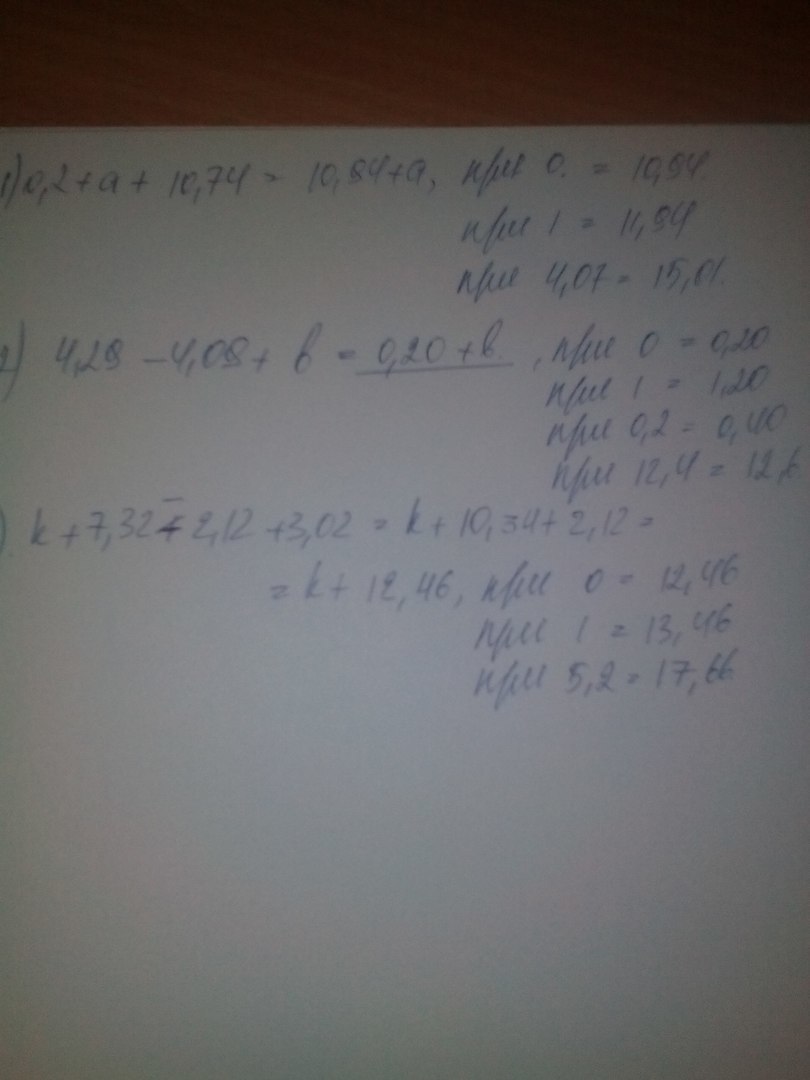 1) 0,2 + a + 10,74 = 10,94 + a, при 0. = 10,94
при 1 = 11,94
при 4,07 = 15,01.
2) 4,29 - 4,09 + b = 0,20 + b. , при 0 = 0,20
при 1 = 1,20
при 0,2 = 0,40
при 12,4 = 12,6
) k + 7,32 + 2,12 + 3,02 = k + 10,34 + 2,12 =
= k + 12,46, при 0 = 12,46
при 1 = 13,46
при 5,2 = 17,66